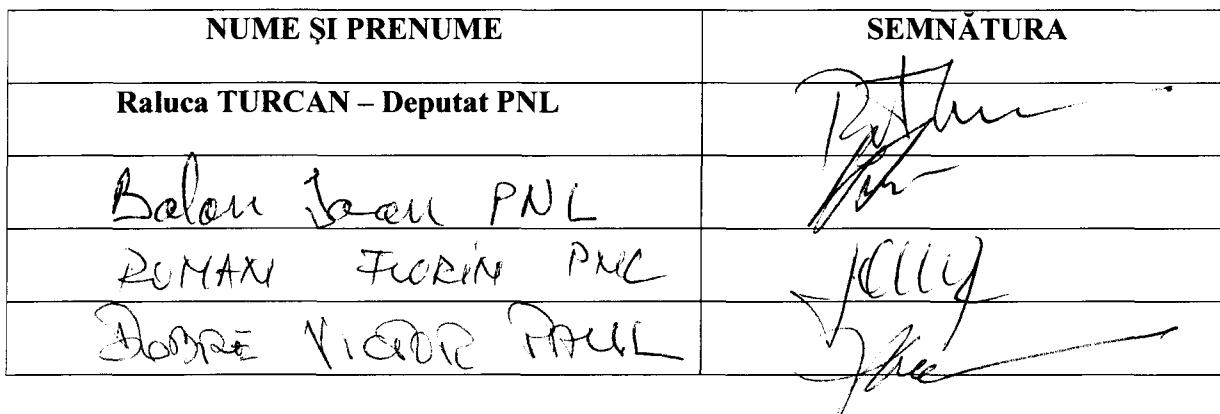 NUME ŞI PRENUME SEMNĂTURA
Raluca TURCAN – Deputat PNL
Balan Ioan PNL
ROMAN FLORIN PNL
DOBRE VICTOR PAUL